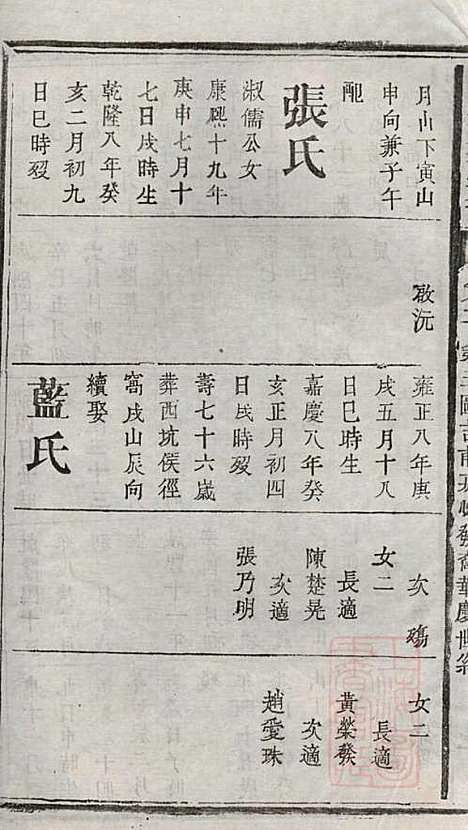 月山下寅山
申向兼子午
配
張氏
淑儒公女
康熙十九年
庚申七月十
七日戌時生
乾隆八年癸
亥二月初九
日巳時歿
啟沅
雍正八年庚
戌五月十八
日巳時生
嘉慶八年癸
亥正月初四
日戌時歿
壽七十六歲
葬西坑侯徑
窩戌山辰向
續娶
藍氏
次殤
女二
長適
陳楚晃
次適
張乃明
女二
長適
黃榮發
次適
趙愛珠